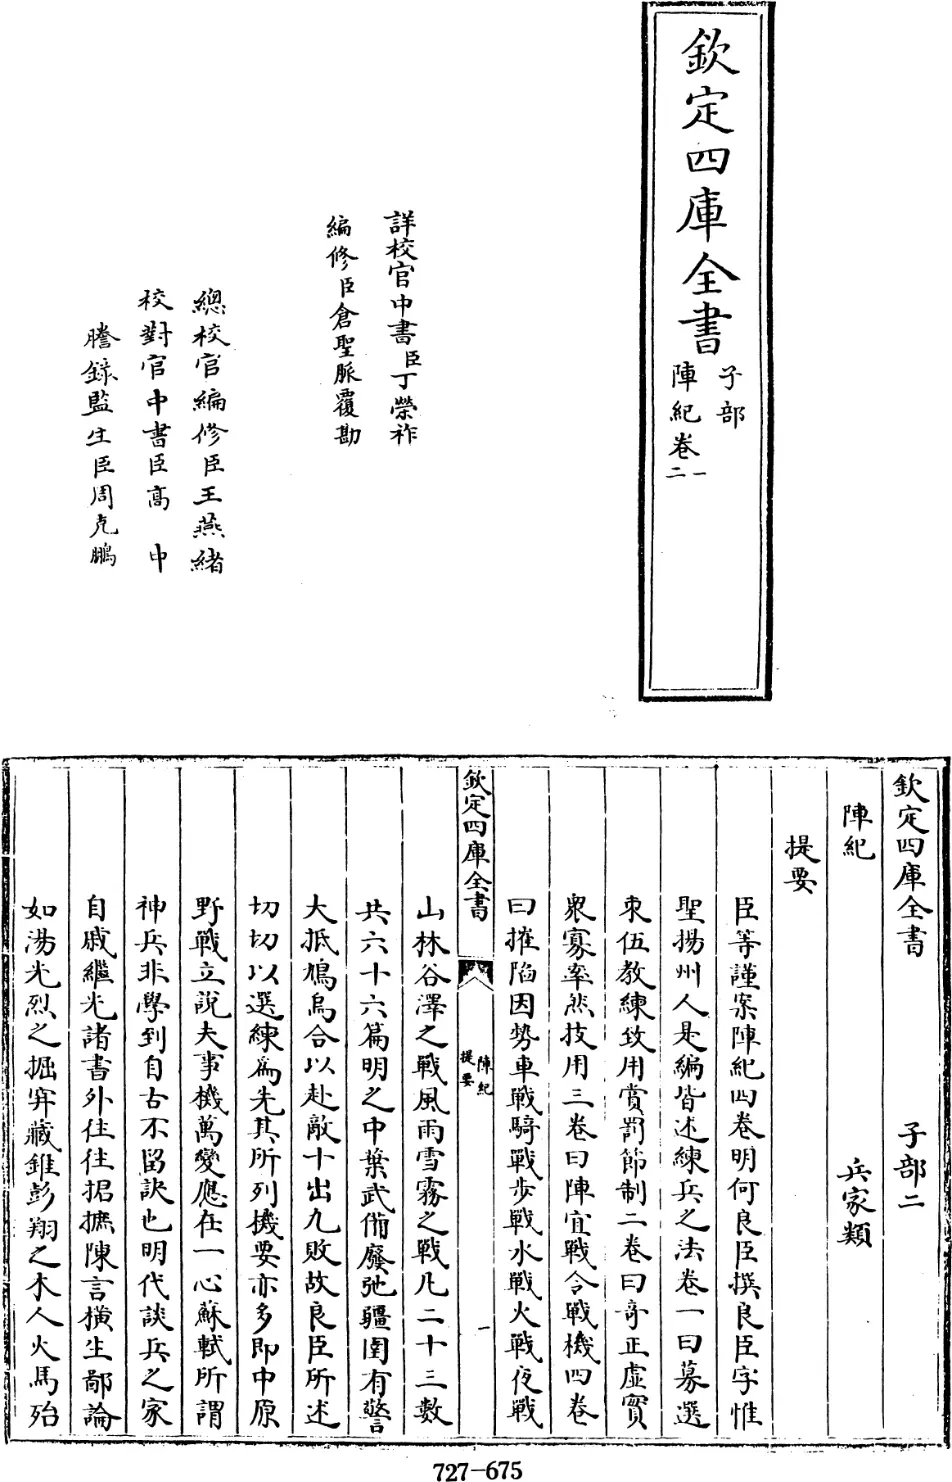 欽定四庫全書
子部
陣紀卷一二
詳校官中書臣丁榮祚
編修臣倉聖脈覆勘
總校官編修臣王燕緒
校對官中書臣高中
謄錄監生臣周克鵬
欽定四庫全書 子部二
陣紀 兵家類
提要
臣等謹案陣紀四卷明何良臣撰良臣字惟
聖揚州人是編皆述練兵之法卷一曰募選
束伍教練致用賞罰節制二卷曰奇正虛實
衆寡率然技用三卷曰陣宜戰令戰機四卷
曰摧陷因勢車戰騎戰步戰水戰火戰夜戰
欽定四庫全書
陣紀
提要
一
山林谷澤之戰風雨雪霧之戰凡二十三數
共六十六篇明之中葉武備廢弛疆圉有警
大抵鳩烏合以赴敵十出九敗故良臣所述
切切以選練爲先其所列機要亦多即中原
野戰立說夫事機萬變應在一心蘇軾所謂
神兵非學到自古不留訣也明代談兵之家
自戚繼光諸書外往往捃摭陳言橫生鄙論
如湯光烈之掘穽藏錐彭翔之木人火馬殆
727-675